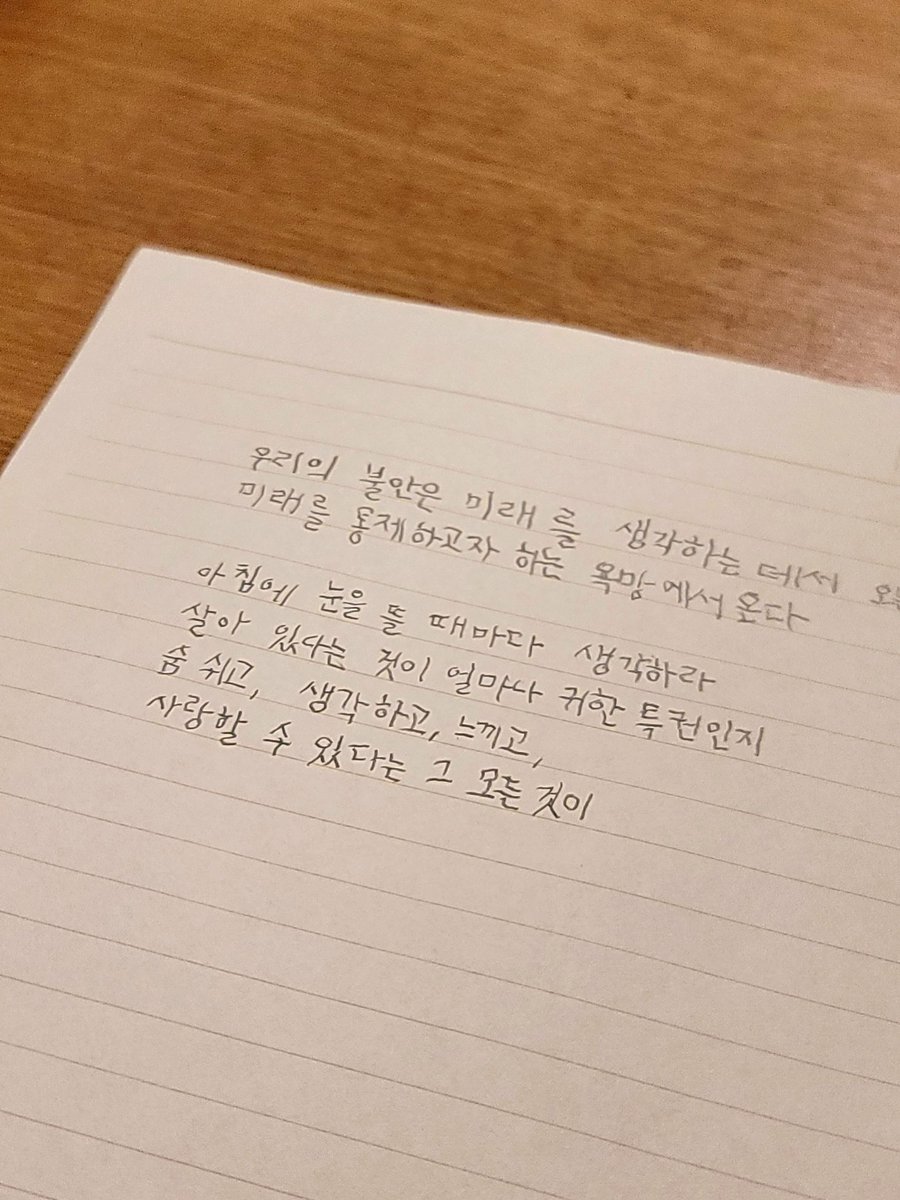 우리의 불안은 미래를 생각하는 데서
미래를 통제하고자 하는 욕망에서 온다
아침에 눈을 뜰 때마다 생각하라
살아 있다는 것이 얼마나 귀한 특권인지
숨 쉬고, 생각하고, 느끼고,
사랑할 수 있다는 그 모든 것이